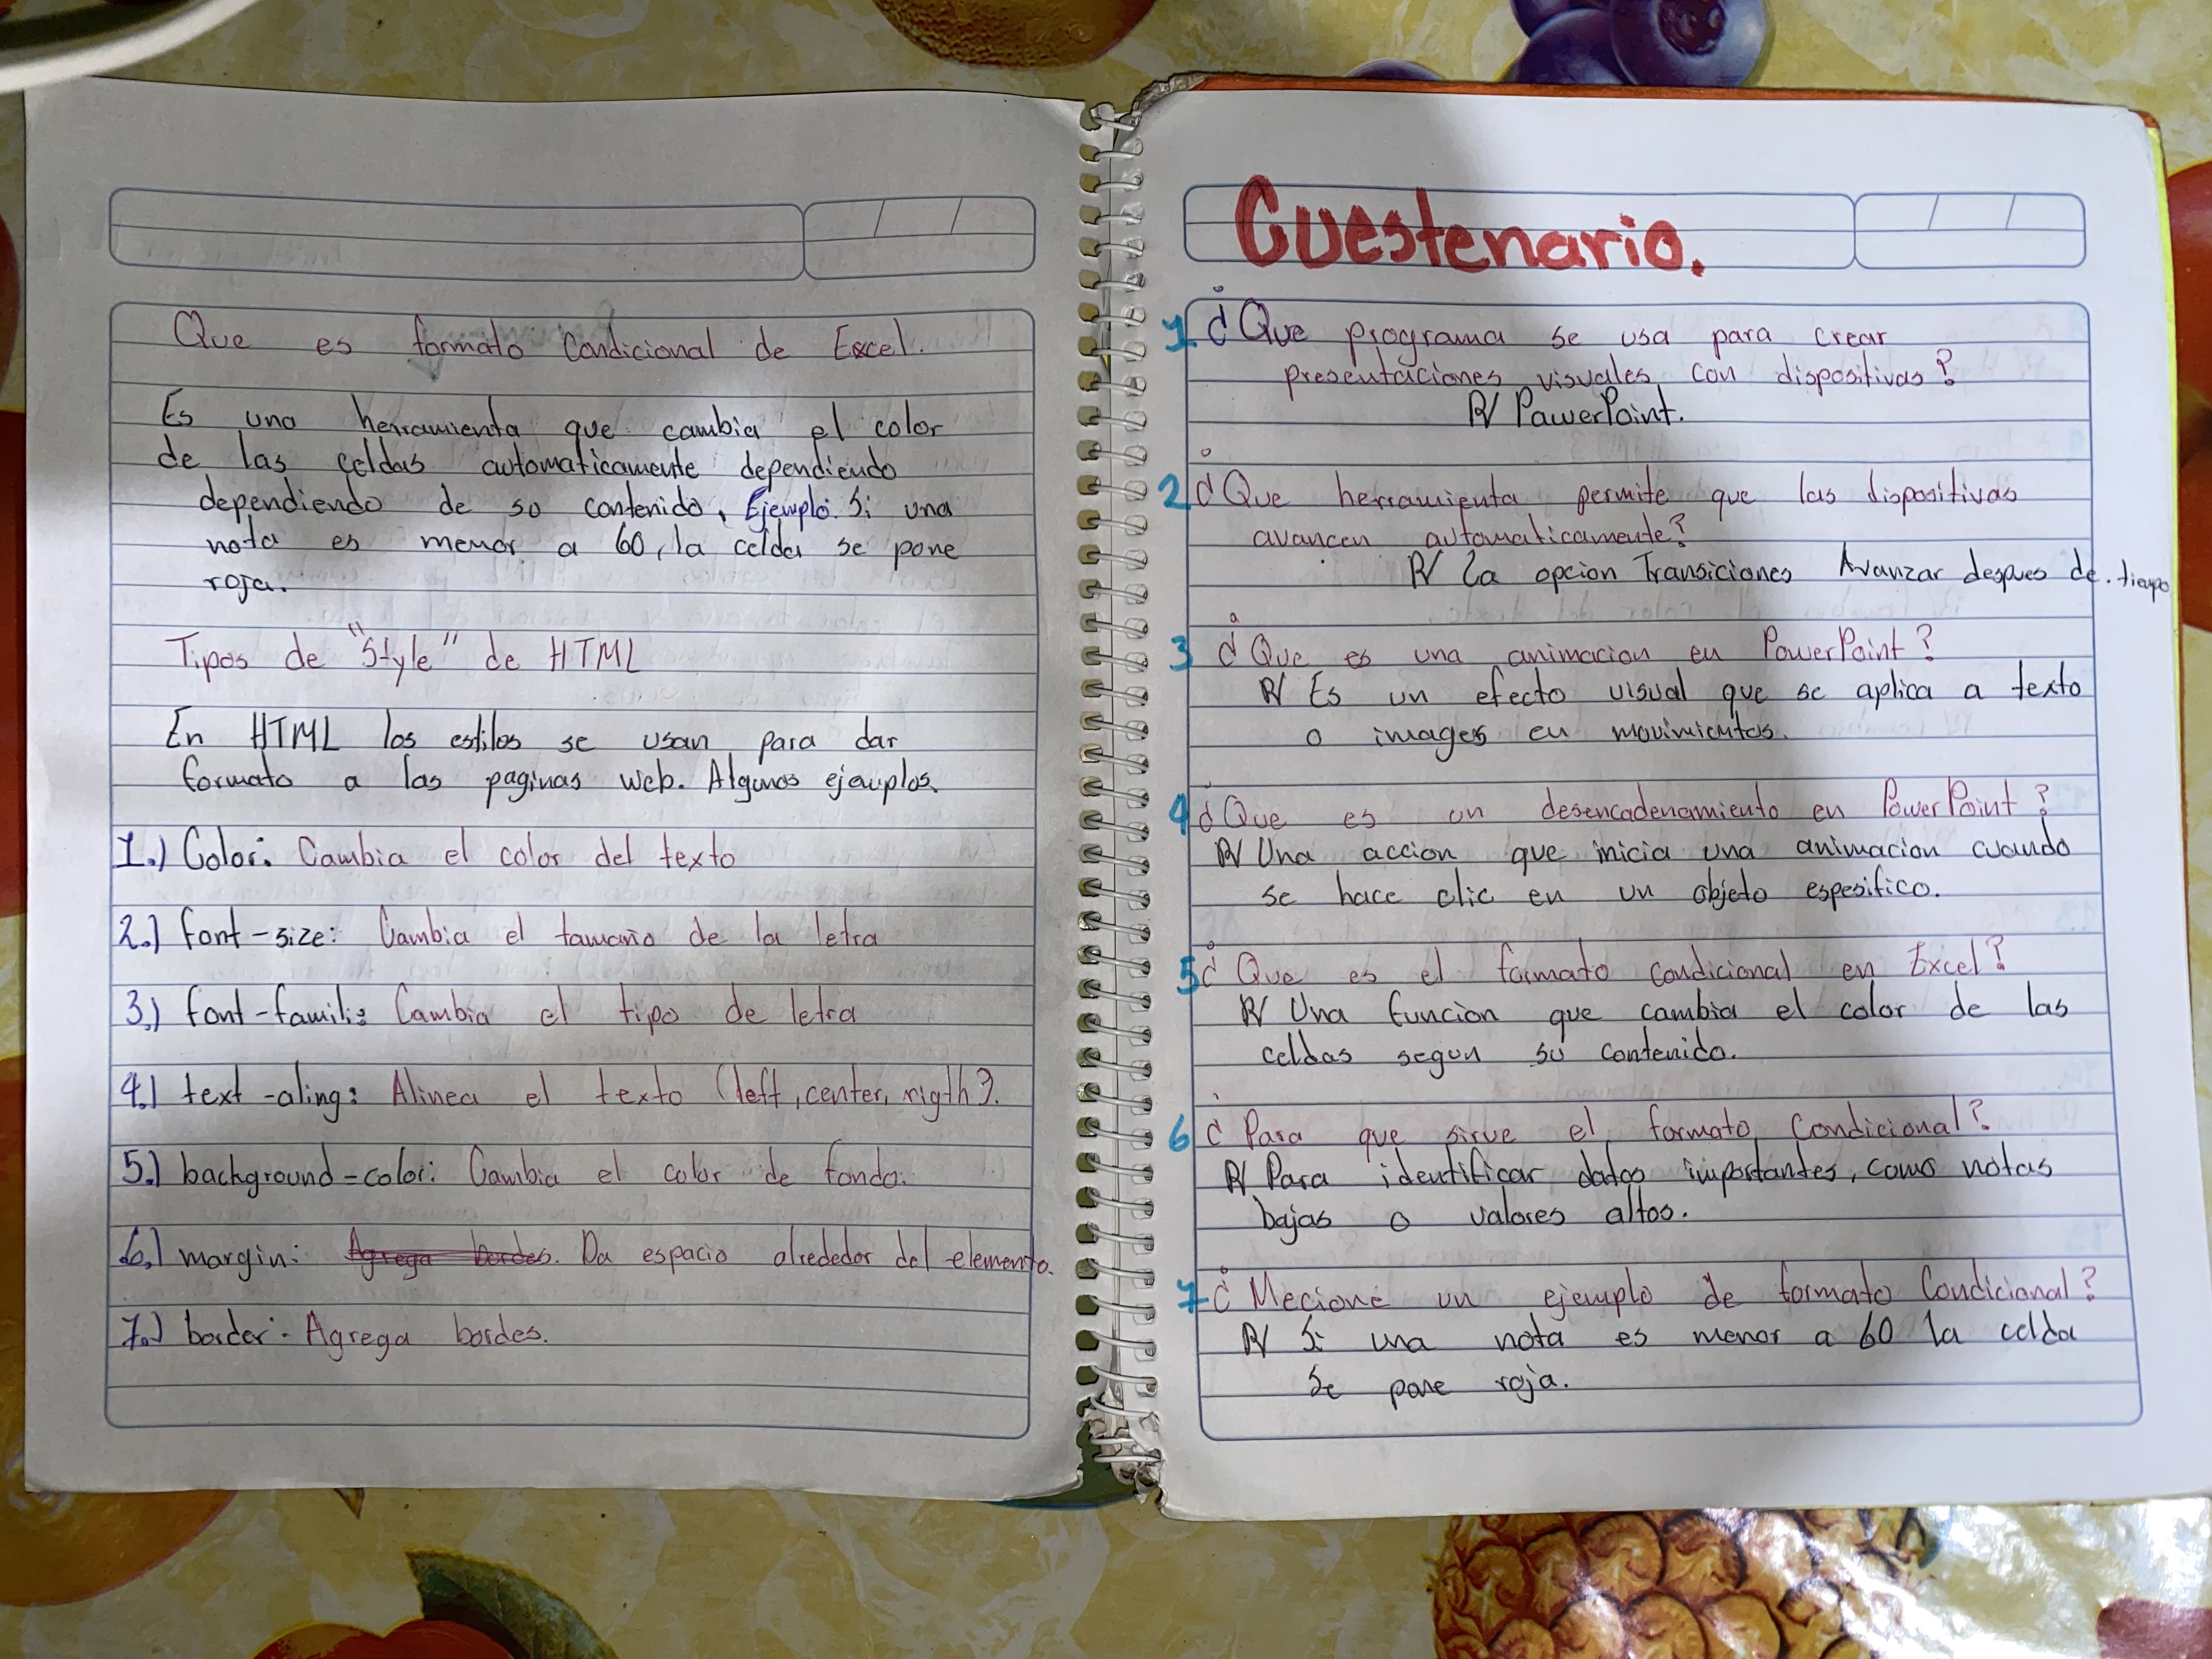 Que es formato Condicional de Excel.
Es una herramienta que cambia el color
de las celdas automaticamente dependiendo
dependiendo de so contenido, Ejemplo: Si una
nota es menor a 60, la celda se pone
roja.
Tipos de "Style" de HTML
En HTML los estilos se usan para dar
formato a las paginas web. Algunos ejemplos.
1.) Color: Cambia el color del texto
2.) font-size: Cambia el tamaño de la letra
3.) font-famili: Cambia el tipo de letra
4.) text-aling: Alinea el texto (left, center, rigth).
5.) background-color: Cambia el color de fondo.
6.) margin: Agrega bordes. Da espacio alrededor del elemento.
7.) border: Agrega bordes.
Cuestenario.
1 ¿Que programa se usa para crear
presentaciones visuales con dispositivas?
R/ PawerPoint.
2 ¿Que herramienta permite que las dispositivas
avancen automaticamente?
R/ La opcion Transiciones Avanzar despues de. tiempo
3 ¿Que es una animacion en PowerPoint?
R/ Es un efecto visual que se aplica a texto
o images en movimientos.
4 ¿Que es un desencadenamiento en PowerPoint?
R/ Una accion que inicia una animacion cuando
se hace clic en un objeto espesifico.
5 ¿Que es el formato condicional en Excel?
R/ Una funcion que cambia el color de las
celdas segun su contenido.
6 ¿Para que sirve el formato Condicional?
R/ Para identificar datos importantes, como notas
bajas o valores altos.
7 ¿Mecione un ejemplo de formato Condicional?
R/ Si una nota es menor a 60 la celda
Se pone roja.